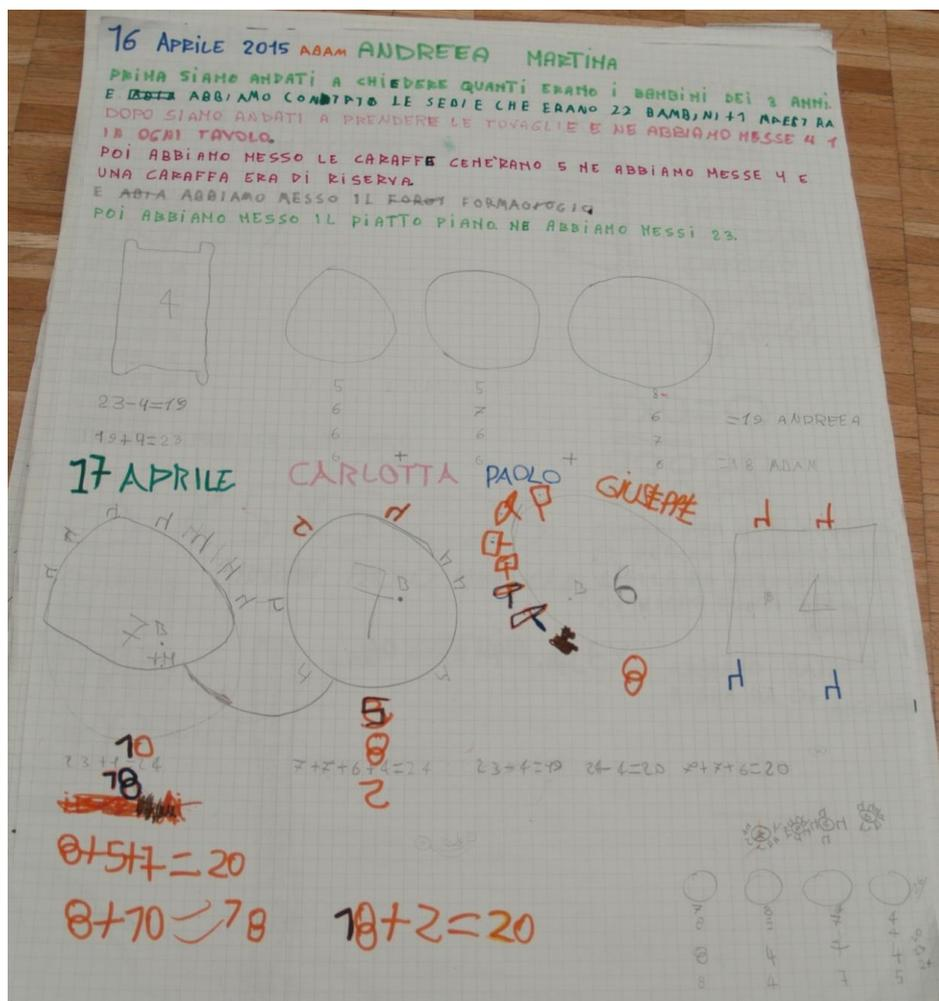 16 APRILE 2015 ADAM ANDREEA MARTINA
PRIMA SIAMO ANDATI A CHIEDERE QUANTI ERANO I BAMBINI DEI 3 ANNI.
E ABBIAMO CONTATO LE SEDIE CHE ERANO 22 BAMBINI +1 MAESTRA
DOPO SIAMO ANDATI A PRENDERE LE TOVAGLIE E NE ABBIAMO MESSE 4 1
IN OGNI TAVOLO.
POI ABBIAMO MESSO LE CARAFFE CENE'RANO 5 NE ABBIAMO MESSE 4 E
UNA CARAFFA ERA DI RISERVA.
E ABBIAMO MESSO IL
POI ABBIAMO MESSO IL PIATTO PIANO. NE ABBIAMO MESSI 23.
4
5 5 8
23-4=19 6 7 6 =19 ANDREEA
19+4=23 6 6 7
6 + 6 + 6 =18 ADAM
17 APRILE CARLOTTA PAOLO GIUSEPPE
7 B 7 B B 6 4
8
10 5
18 8
2
23+1=24 7+7+6+4=24 23-4=19 24-4=20 7+7+6=20
8+5+7=20
8+10=18 18+2=20
8 4 7 5